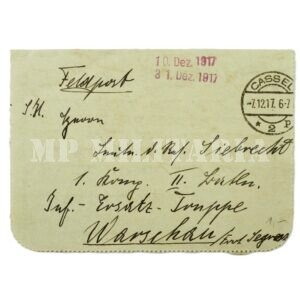 Feldpost
10. Dez. 1917
31. Dez. 1917
CASSEL
-7.12.17. 6-7
* 2 p
S.H. Herrn
Leutn. d. Res. Siebrecht
1. Komp. II. Batln.
Inf.-Ersatz-Truppe
Warschau
MP MILITARIA